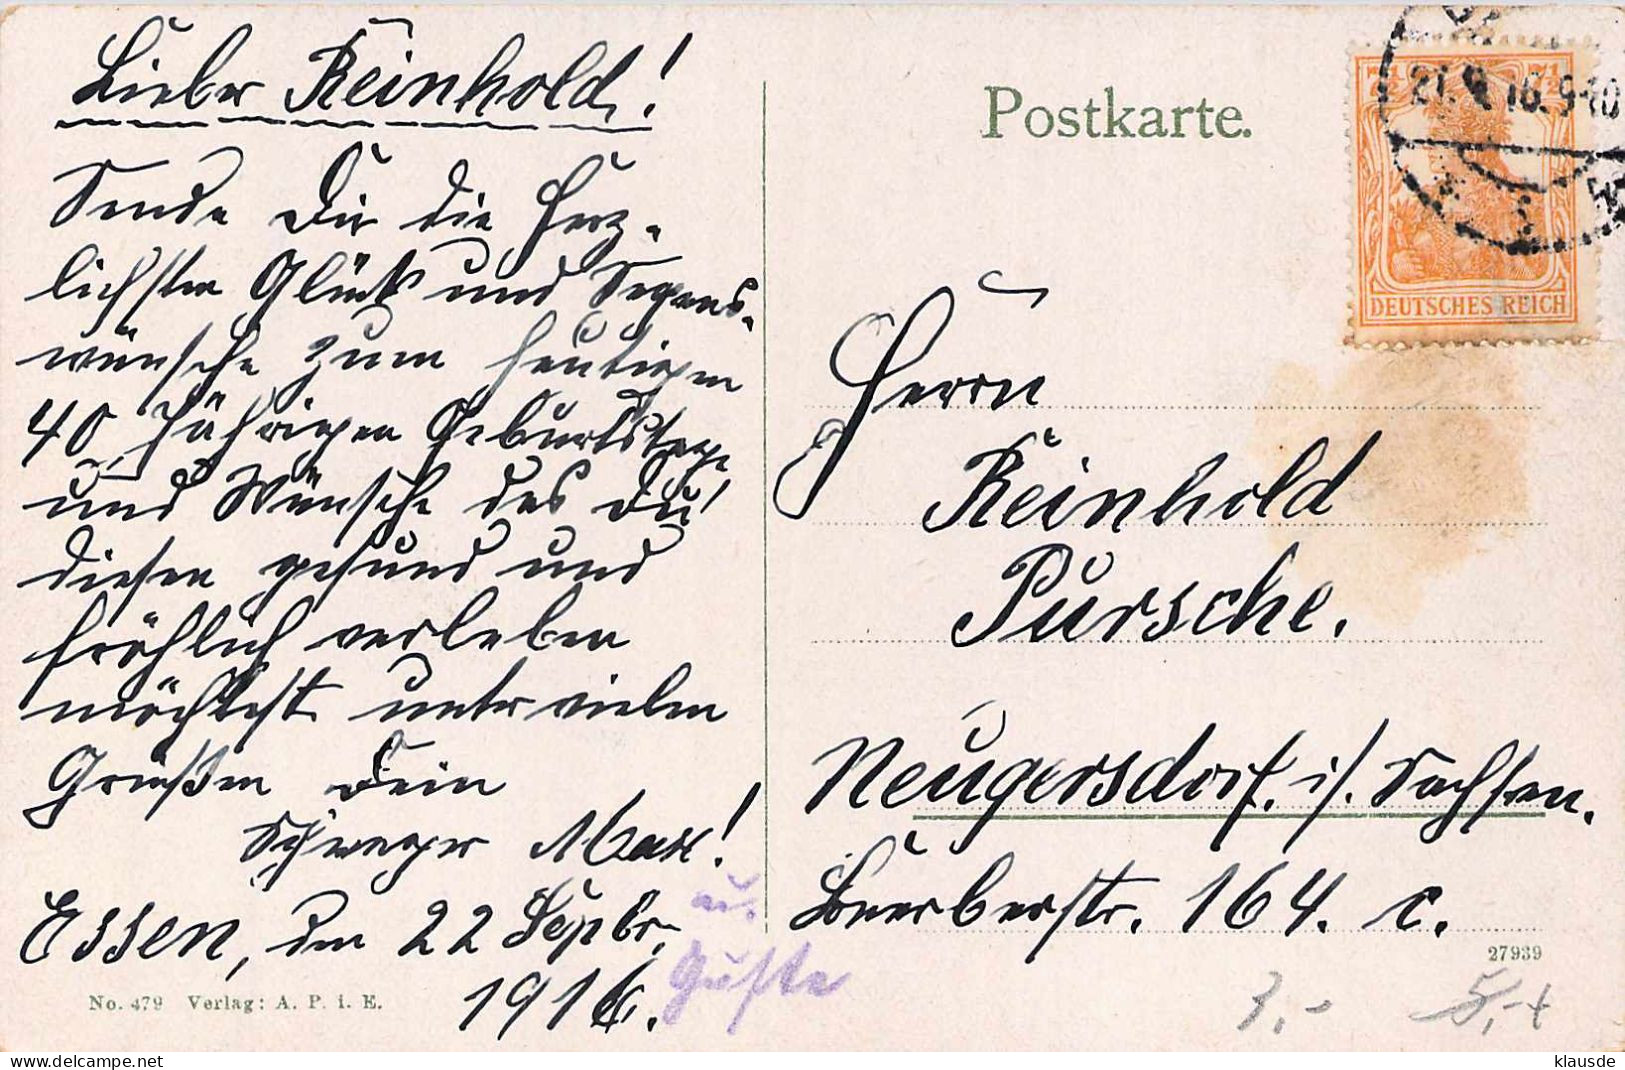 Lieber Reinhold!
Sende Dir die herz-
lichsten Glück und Segens-
wünsche zum heutigen
40 Jährigen Geburtstage
und Wünsche das Du
diesen gesund und
fröhlich verleben
möchtest unter vielen
Grüßen Dein
Schwager Max!
u.
Guste
Essen, den 22 Septbr,
1916.
No. 479 Verlag: A. P. i. E.
Postkarte.
7½ 7½
21.9.16.9-10
DEUTSCHES REICH
Herrn
Reinhold
Pursche.
Neugersdorf. i/. Sachsen.
164. c.
27939
3,- 5,-
klausde